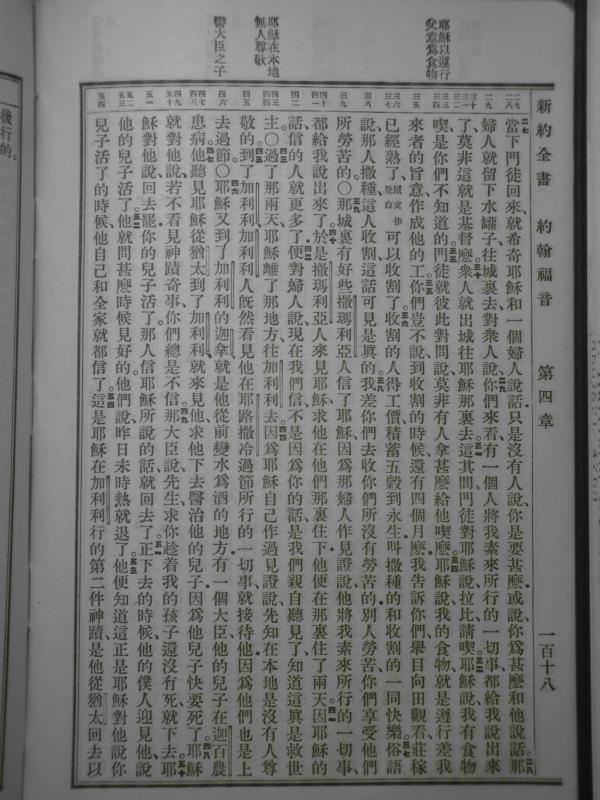 新約全書 約翰福音 第四章 一百十八
耶穌以遵行
父意爲食物
耶穌在本地
無人尊敬
醫大臣之子
當下門徒回來、就希奇耶穌和一個婦人說話、只是沒有人說、你是要甚麽、或說、你爲甚麽和他說話、那
婦人就留下水罐子、往城裏去、對衆人說、你們來看、有一個人將我素來所行的一切事、都給我說出來
了、莫非這就是基督麽。衆人就出城往耶穌那裏去。這其間門徒對耶穌說、拉比請喫。耶穌說、我有食物
喫、是你們不知道的。門徒就彼此對問說、莫非有人拿甚麽給他喫麽。耶穌說、我的食物、就是遵行差我
來者的旨意、作成他的工。你們豈不說、到收割的時候、還有四個月麽、我告訴你們、舉目向田觀看、莊稼
已經熟了、原文作發白可以收割了。收割的人得工價、積蓄五穀到永生、叫撒種的和收割的一同快樂。俗語
說、那人撒種、這人收割、這話可見是眞的。我差你們去收你們所沒有勞苦的、別人勞苦、你們享受他們
所勞苦的。○那城裏有好些撒瑪利亞人信了耶穌、因爲那婦人作見證說、他將我素來所行的一切事、
都給我說出來了。於是撒瑪利亞人來見耶穌、求他在他們那裏住下、他便在那裏住了兩天。因耶穌的
話、信的人就更多了。便對婦人說、現在我們信、不是因爲你的話、是我們親自聽見了、知道這眞是救世
主。○過了那兩天、耶穌離了那地方、往加利利去。因爲耶穌自己作過見證說、先知在本地是沒有人尊
敬的。到了加利利、加利利人旣然看見他在耶路撒冷過節所行的一切事、就接待他、因爲他們也是上
去過節。○耶穌又到了加利利的迦拿、就是他從前變水爲酒的地方、有一個大臣、他的兒子在迦百農
患病。他聽見耶穌從猶太到了加利利、就來見他、求他下去醫治他的兒子、因爲他兒子快要死了。耶穌
就對他說、若不看見神蹟奇事、你們總是不信。那大臣說、先生、求你趁着我的孩子還沒有死就下去。耶
穌對他說、回去罷、你的兒子活了、那人信耶穌所說的話、就回去了。正下去的時候、他的僕人迎見他、說
他的兒子活了。他就問甚麽時候見好的、他們說、昨日未時熱就退了。他便知道這正是耶穌對他說你
兒子活了的時候、他自己和全家就都信了。這是耶穌在加利利行的第二件神蹟、是他從猶太回去以
後行的。